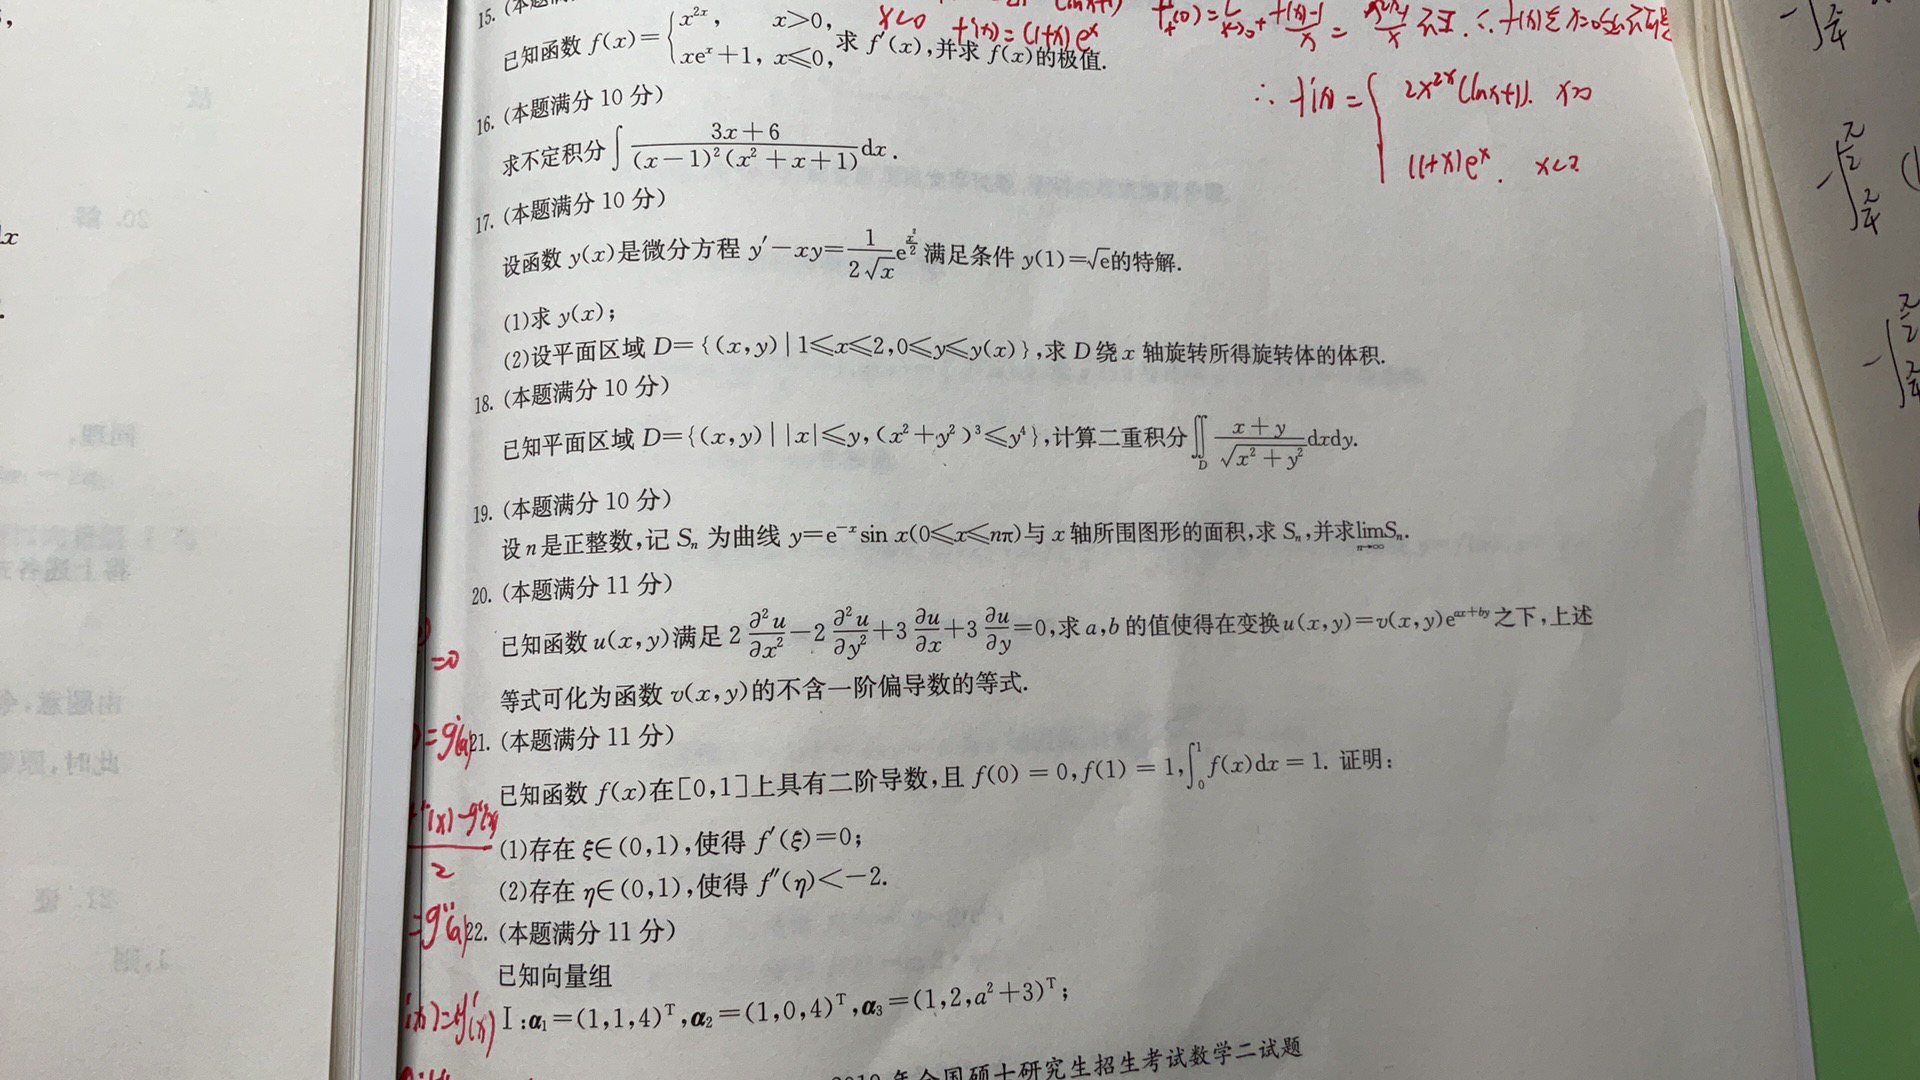 15. (本题满
已知函数 f(x)={x^{2x}, x>0, xe^x+1, x≤0, 求 f′(x),并求 f(x)的极值.
x<0 f'(x)=(1+x)e^x
∴ f'(x)={2x^{2x}(lnx+1). x>0
(1+x)e^x. x<0
16. (本题满分 10 分)
求不定积分∫(3x+6)/((x-1)²(x²+x+1))dx.
17. (本题满分 10 分)
设函数 y(x)是微分方程 y′-xy=1/(2√x)e^{x²/2}满足条件 y(1)=√e的特解.
(1)求 y(x);
(2)设平面区域 D={(x,y)|1≤x≤2,0≤y≤y(x)},求 D 绕 x 轴旋转所得旋转体的体积.
18. (本题满分 10 分)
已知平面区域 D={(x,y)||x|≤y,(x²+y²)³≤y⁴},计算二重积分∬_D (x+y)/√(x²+y²)dxdy.
19. (本题满分 10 分)
设 n 是正整数,记 Sₙ 为曲线 y=e^{-x}sin x(0≤x≤nπ)与 x 轴所围图形的面积,求 Sₙ,并求lim_{n→∞}Sₙ.
20. (本题满分 11 分)
已知函数 u(x,y)满足 2∂²u/∂x²-2∂²u/∂y²+3∂u/∂x+3∂u/∂y=0,求 a,b 的值使得在变换u(x,y)=v(x,y)e^{ax+by}之下,上述
等式可化为函数 v(x,y)的不含一阶偏导数的等式.
21. (本题满分 11 分)
已知函数 f(x)在[0,1]上具有二阶导数,且 f(0)=0,f(1)=1,∫₀¹f(x)dx=1. 证明:
(1)存在 ξ∈(0,1),使得 f′(ξ)=0;
(2)存在 η∈(0,1),使得 f″(η)<-2.
22. (本题满分 11 分)
已知向量组
Ⅰ:α₁=(1,1,4)^T,α₂=(1,0,4)^T,α₃=(1,2,a²+3)^T;
年全国硕士研究生招生考试数学二试题